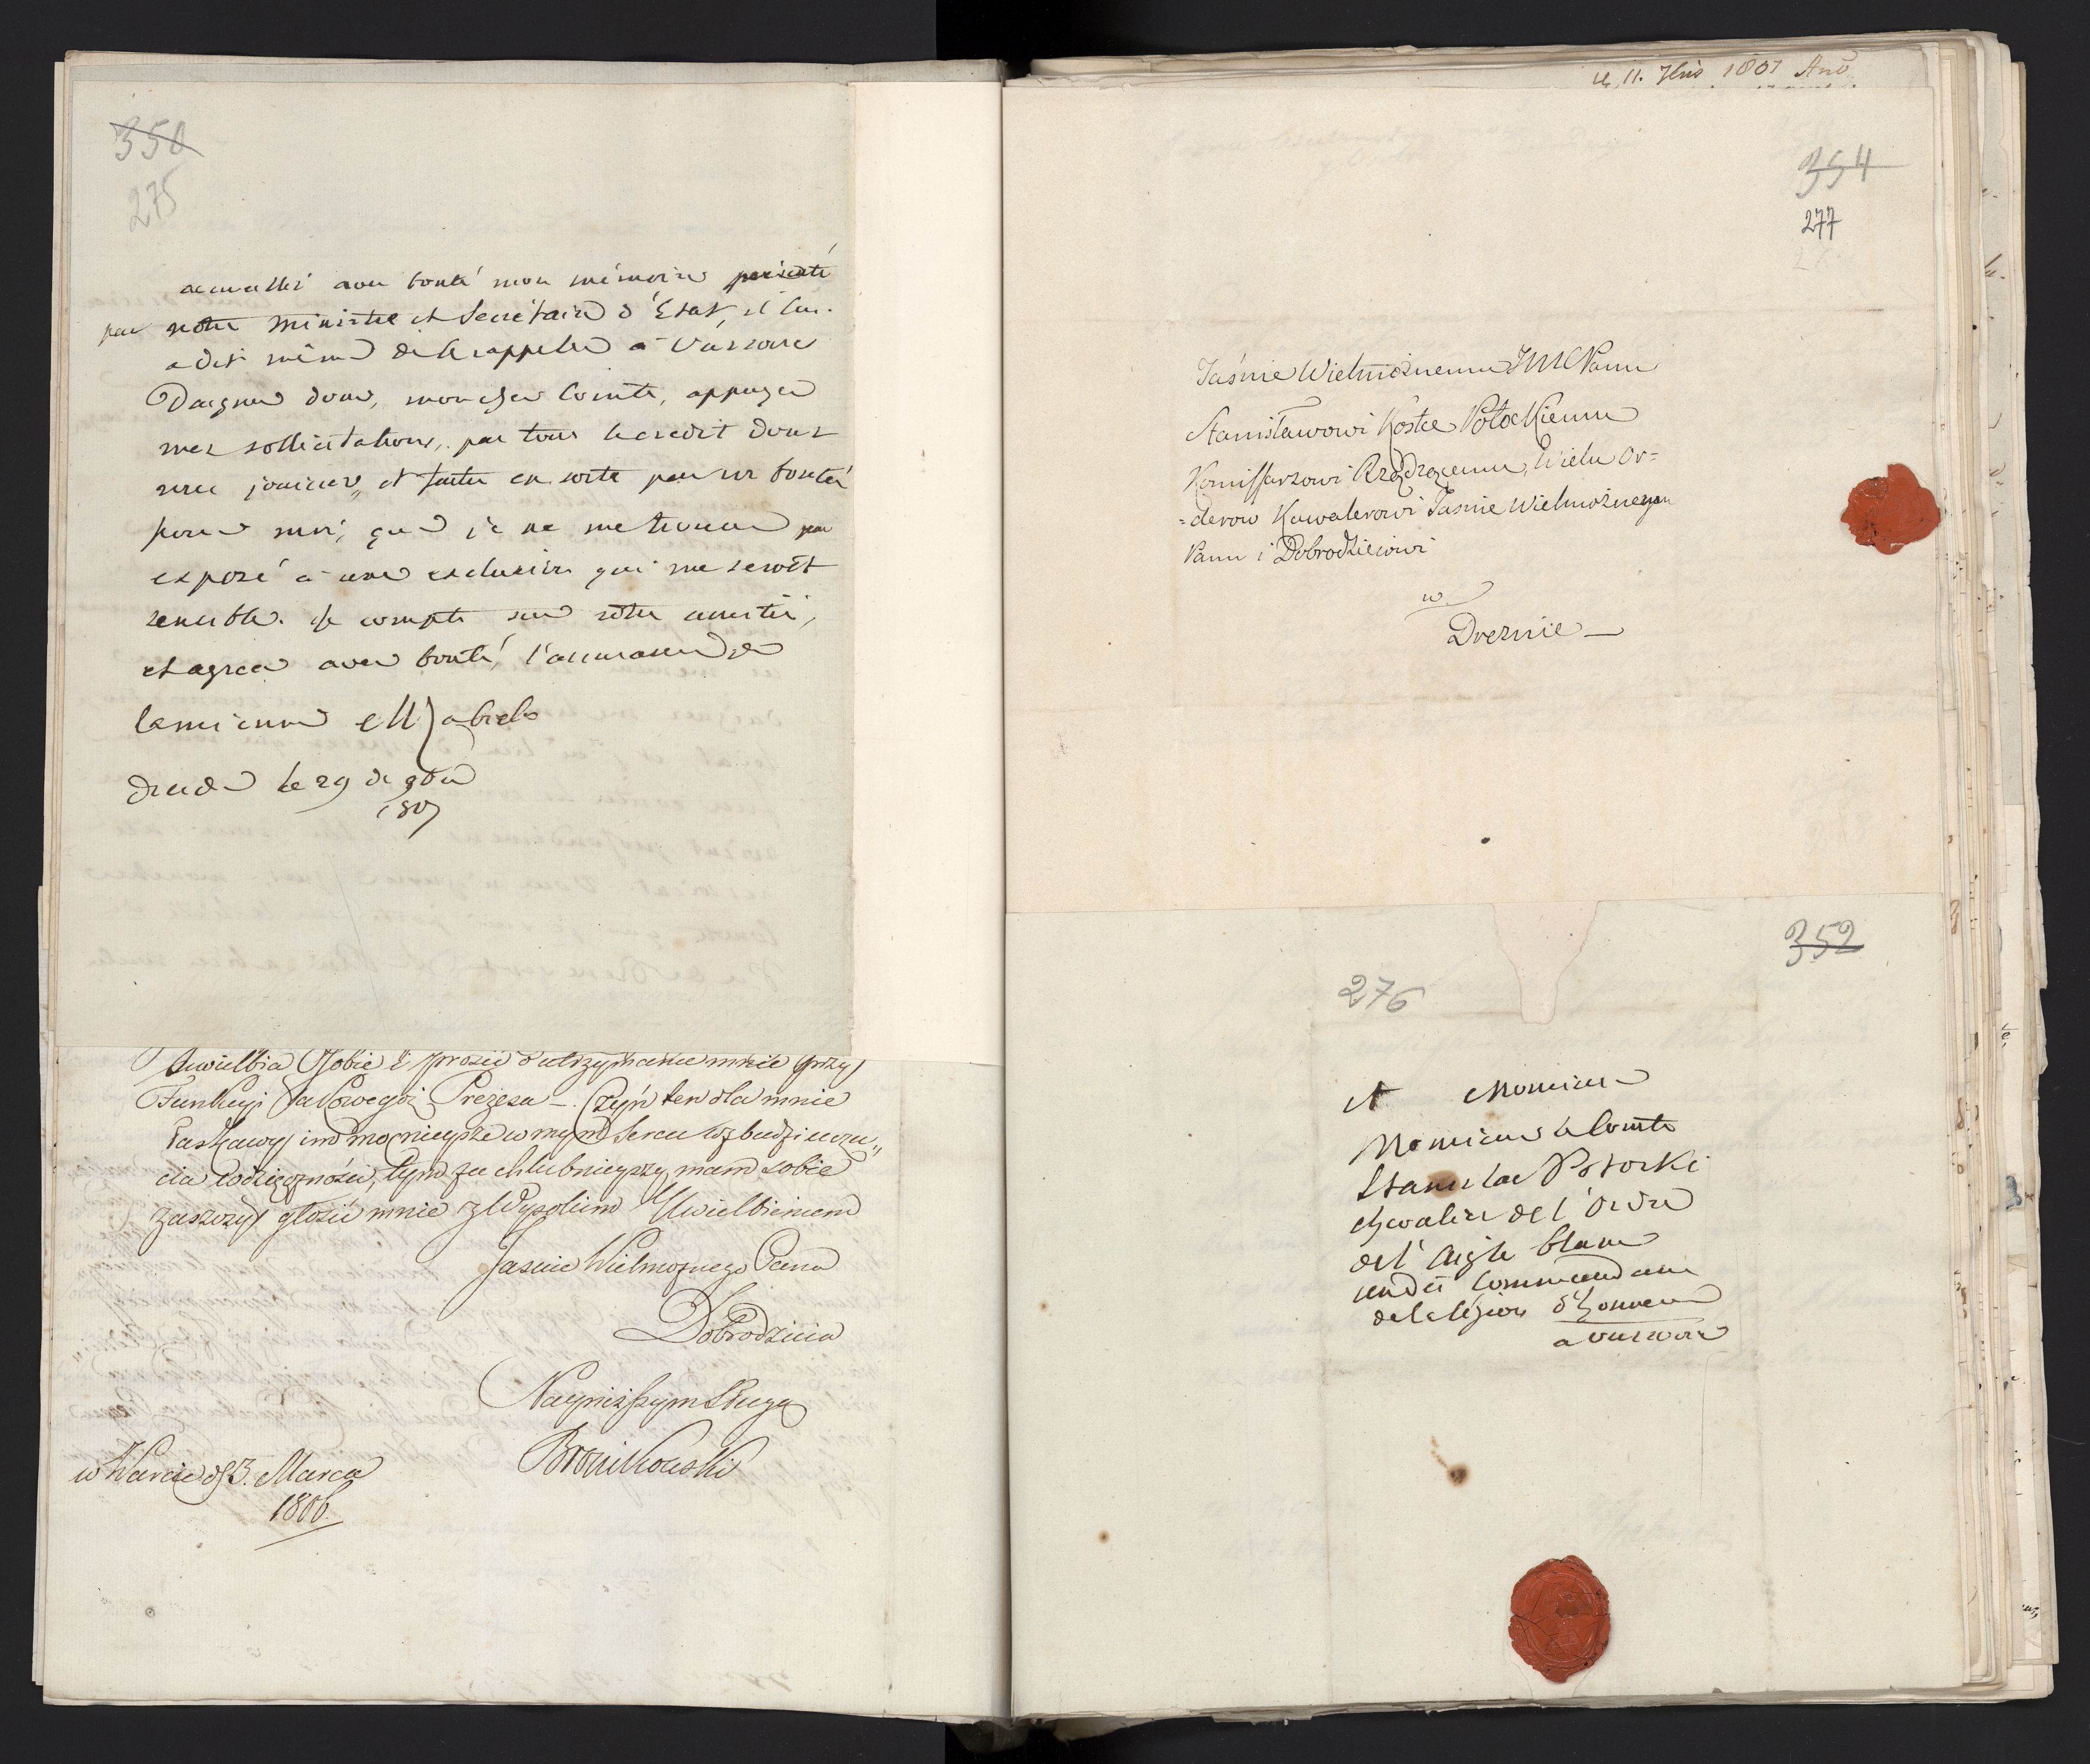 350
275
accueilli avec bonté mon mémoire présenté
par notre Ministre et Secrétaire d'État, il lui
a dit même de le rappeller à Varsovie
Daignez donc, mon cher Comte, appuyer
mes sollicitations, par tout le credit dont
vous jouissez, et faites en sorte par vos bontés
pour moi, que je ne me trouve pas
exposé à une exclusion qui me seroit
sensible. Je compte sur votre amitié,
et agreez avec bonté, l'assurance de
la mienne
dresde le 29 de 9bre
1807
Uwielbia Osobie i prosić o utrzymanie mnie przy
Funkcyi Prezesa – Czyn ten dla mnie
łaskawy im mocnieysze w mym Sercu wzbudzi uczu„
cia wdzięczności, tym za chlubnieyszy mam sobie
zaszczyt głosić mnie z Wysokim Uwielbieniem
Jaśnie Wielmożnego Pana
Dobrodzieia
Nayniższym Sługą
Bronikowski
w Warcie d 3. Marca
1806.
11. 1807
354
277
Jaśnie Wielmożnemu JMC Panu
Stanisławowi Kostce Potockiemu
Komissarzowi Rządzącemu, Wielu Or=
=derow Kawalerowi Jasnie Wielmożnemu
Panu i Dobrodzieiowi
w
Dreznie –
352
276
A Monsieur
Monsieur le Comte
Stanislas Potocki
chevalier de l'Ordre
de l'Aigle blanc
Commandant
de la légion d'honneur
a Varsovie